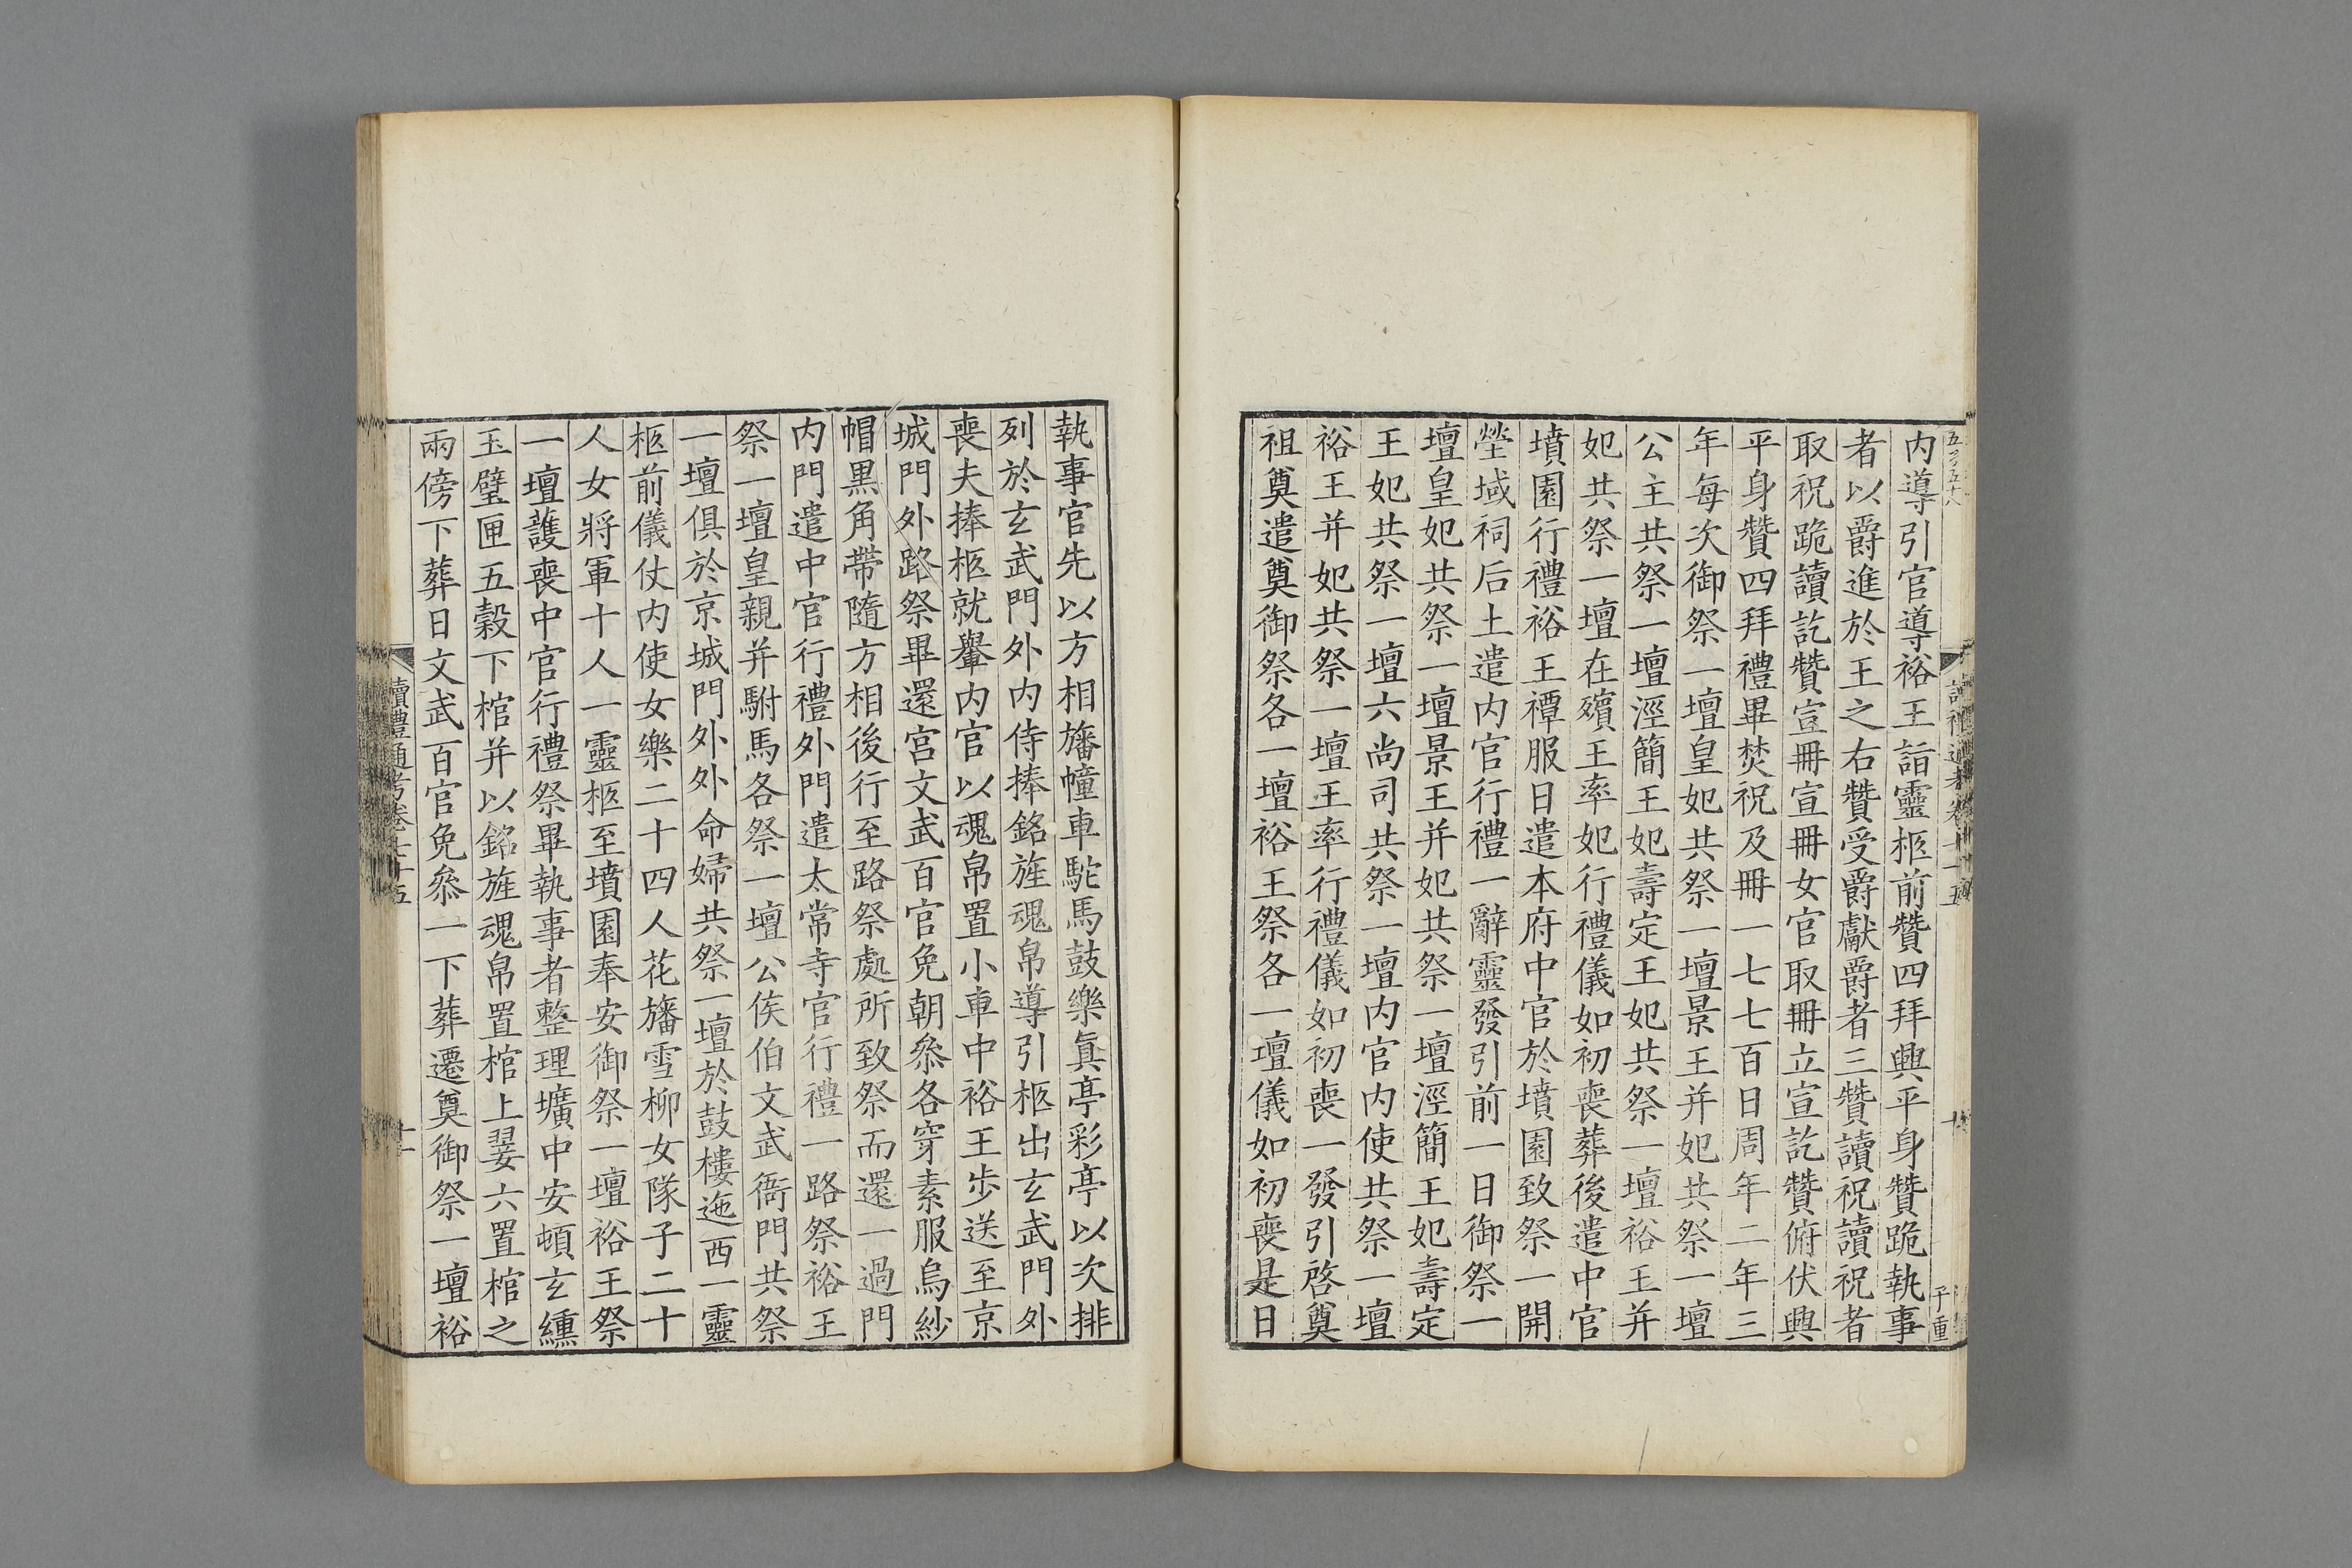 内導引官導裕王詣靈柩前贊四拜興平身贊跪執事
者以爵進於王之右贊受爵獻爵者三贊讀祝讀祝者
取祝跪讀訖贊宣冊宣冊女官取冊立宣訖贊俯伏興
平身贊四拜禮畢焚祝及冊一七七百日周年二年三
年每次御祭一壇皇妃共祭一壇景王并妃共祭一壇
公主共祭一壇涇簡王妃壽定王妃共祭一壇裕王并
妃共祭一壇在殯王率妃行禮儀如初喪葬後遣中官
墳園行禮裕王禫服日遣本府中官於墳園致祭一開
塋域祠后土遣内官行禮一辭靈發引前一日御祭一
壇皇妃共祭一壇景王并妃共祭一壇涇簡王妃壽定
王妃共祭一壇六尚司共祭一壇内官内使共祭一壇
裕王并妃共祭一壇王率行禮儀如初喪一發引啓奠
祖奠遣奠御祭各一壇裕王祭各一壇儀如初喪是日
執事官先以方相旛幢車駝馬鼓樂眞亭彩亭以次排
列於玄武門外内侍捧銘旌魂帛導引柩出玄武門外
喪夫捧柩就轝内官以魂帛置小車中裕王步送至京
城門外路祭畢還宮文武百官免朝叅各穿素服烏紗
帽黑角帶隨方相後行至路祭處所致祭而還一過門
内門遣中官行禮外門遣太常寺官行禮一路祭裕王
祭一壇皇親并駙馬各祭一壇公侯伯文武衙門共祭
一壇俱於京城門外外命婦共祭一壇於鼓樓迤西一靈
柩前儀仗内使女樂二十四人花旛雪柳女隊子二十
人女將軍十人一靈柩至墳園奉安御祭一壇裕王祭
一壇護喪中官行禮祭畢執事者整理壙中安頓玄纁
玉璧匣五穀下棺并以銘旌魂帛置棺上翣六置棺之
兩傍下葬日文武百官免叅一下葬遷奠御祭一壇裕
讀禮通考卷七十五
十一